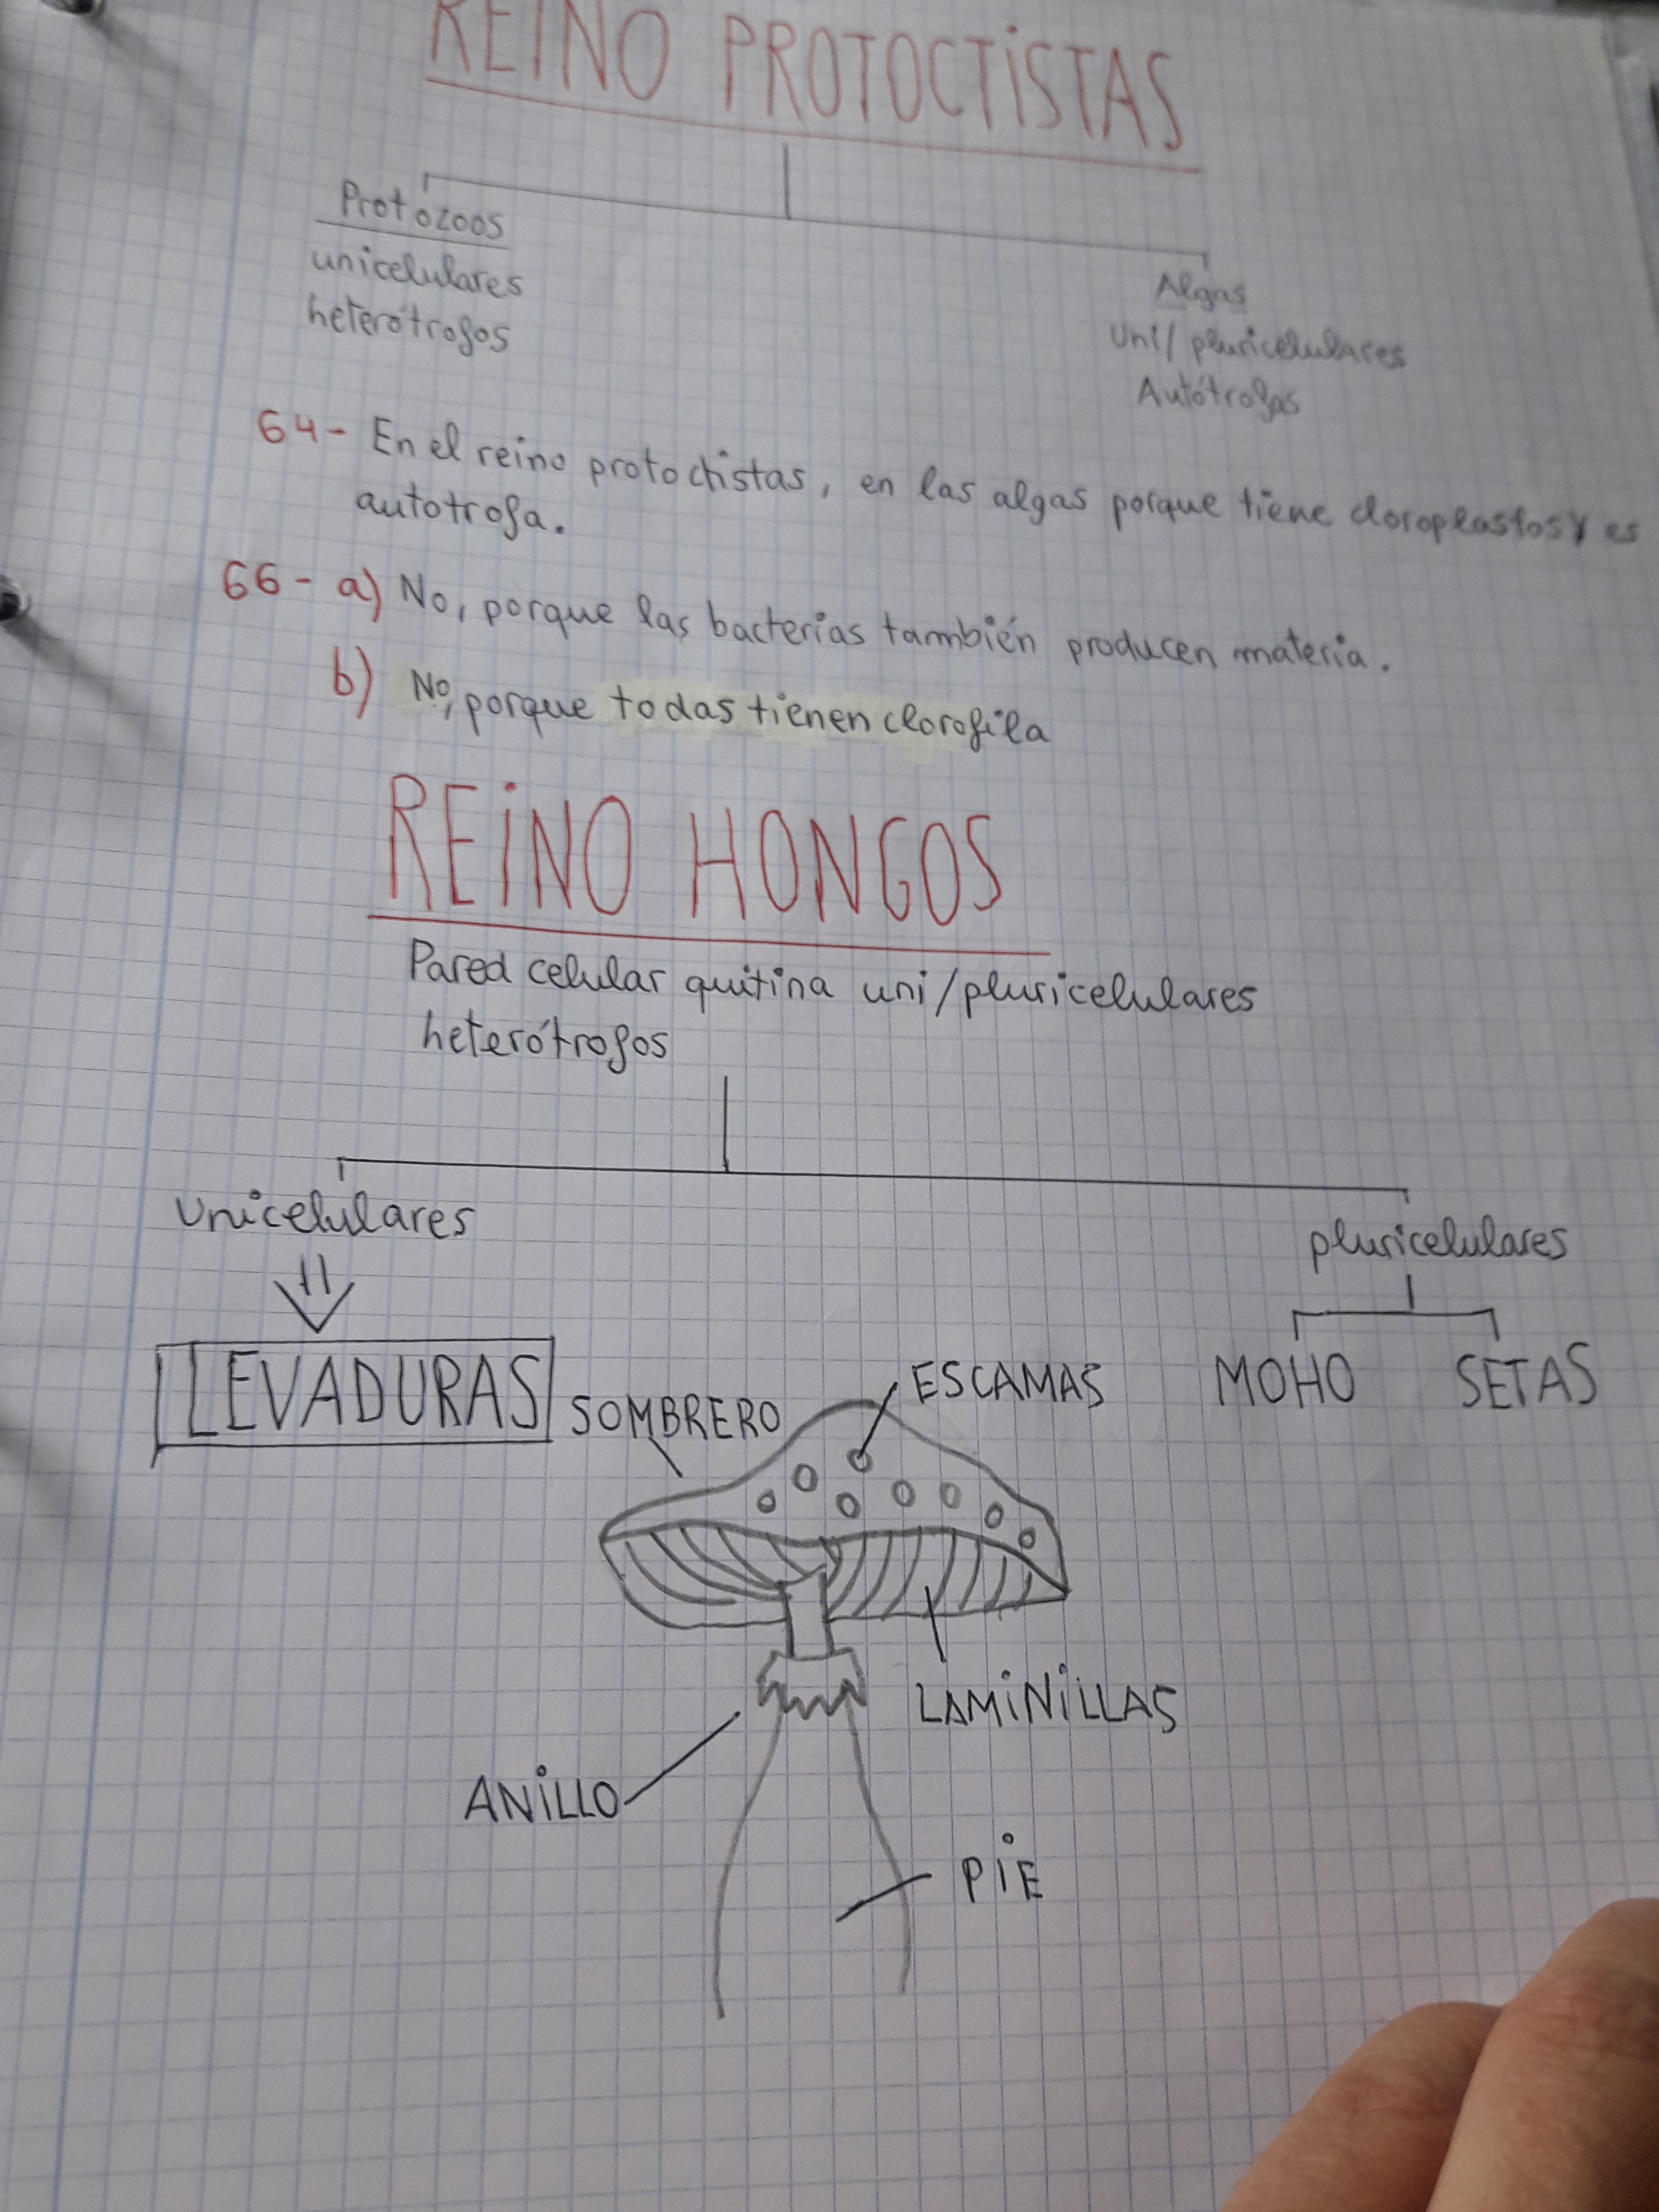 REINO PROTOCTISTAS
Protozoos
unicelulares
heterótrofos
Algas
Uni/pluricelulares
Autótrofas
64- En el reino protoctistas, en las algas porque tiene cloroplastos y es
autotrofa.
66- a) No, porque las bacterias también producen materia.
b) No, porque todas tienen clorofila
REINO HONGOS
Pared celular quitina uni/pluricelulares
heterótrofos
Unicelulares
pluricelulares
LEVADURAS
MOHO
SETAS
SOMBRERO
ESCAMAS
LAMINILLAS
ANILLO
PIE